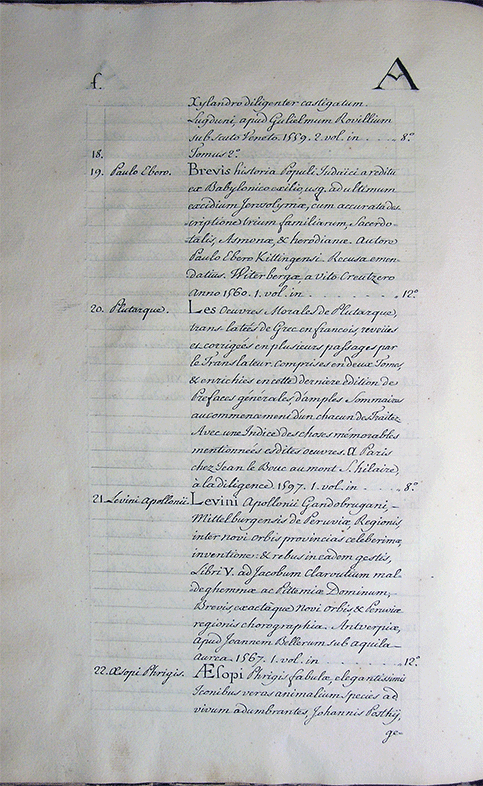 f.
A
Xylandro diligenter castigatum.
Lugduni, apud Gulielmum Rovillium
sub Scuto Veneto. 1559. 2. vol. in . . . . 8.º
18. Tomus 2.º
19. Paulo Ebero. Brevis historia Populi Iudaici a reditu
ex Babylonico exilio, usq. ad ultimum
excidium Jerosolymæ, cum accurata des-
criptione trium familiarum, Sacerdo-
talis, Asmonæ, & herodianæ. Autore
Paulo Ebero Kittingensi. Recusa emen-
datius. Witerbergæ, a Vito Creutzero
Anno 1560. 1. vol. in . . . . 12.º
20. Plutarque. Les Oeuvres Morales de Plutarque,
translatées de Grec en francois, reveües
et corrigeés en plusieurs passages par
le Translateur. comprises en deux Tomes,
& enrichies en cette derniere édition de
Prefaces générales, d'amples Sommaires
au commencement d'un chacun des Traitez
Avec une Indice des choses mémorables
mentionnées esdites oeuvres. A Paris
chez Jean le Bouc au mont S. hilaire,
à la diligence 1597. 1. vol. in . . . . 8.º
21. Levini Apollonii. Levini Apollonii Gandobrugani,
Mittelburgensis de Peruviæ, Regionis
inter novi orbis provincias celeberimæ,
inventione: & rebus in eadem gestis,
Libri V. ad Jacobum Clarvutium mal-
deghemmæ ac Pittemiæ Dominum,
Brevis, exactâque Novi Orbis & Peruviæ
regionis chorographia. Antverpiæ,
apud Joannem Bellerum sub aquila
aurea. 1567. 1. vol. in . . . . 12.º
22. Æsopi Phrigis. Æsopi Phrigis fabulæ, elegantissimis
Iconibus veras animalium species ad
vivum adumbrantes, Johannis Posthij,
ge-